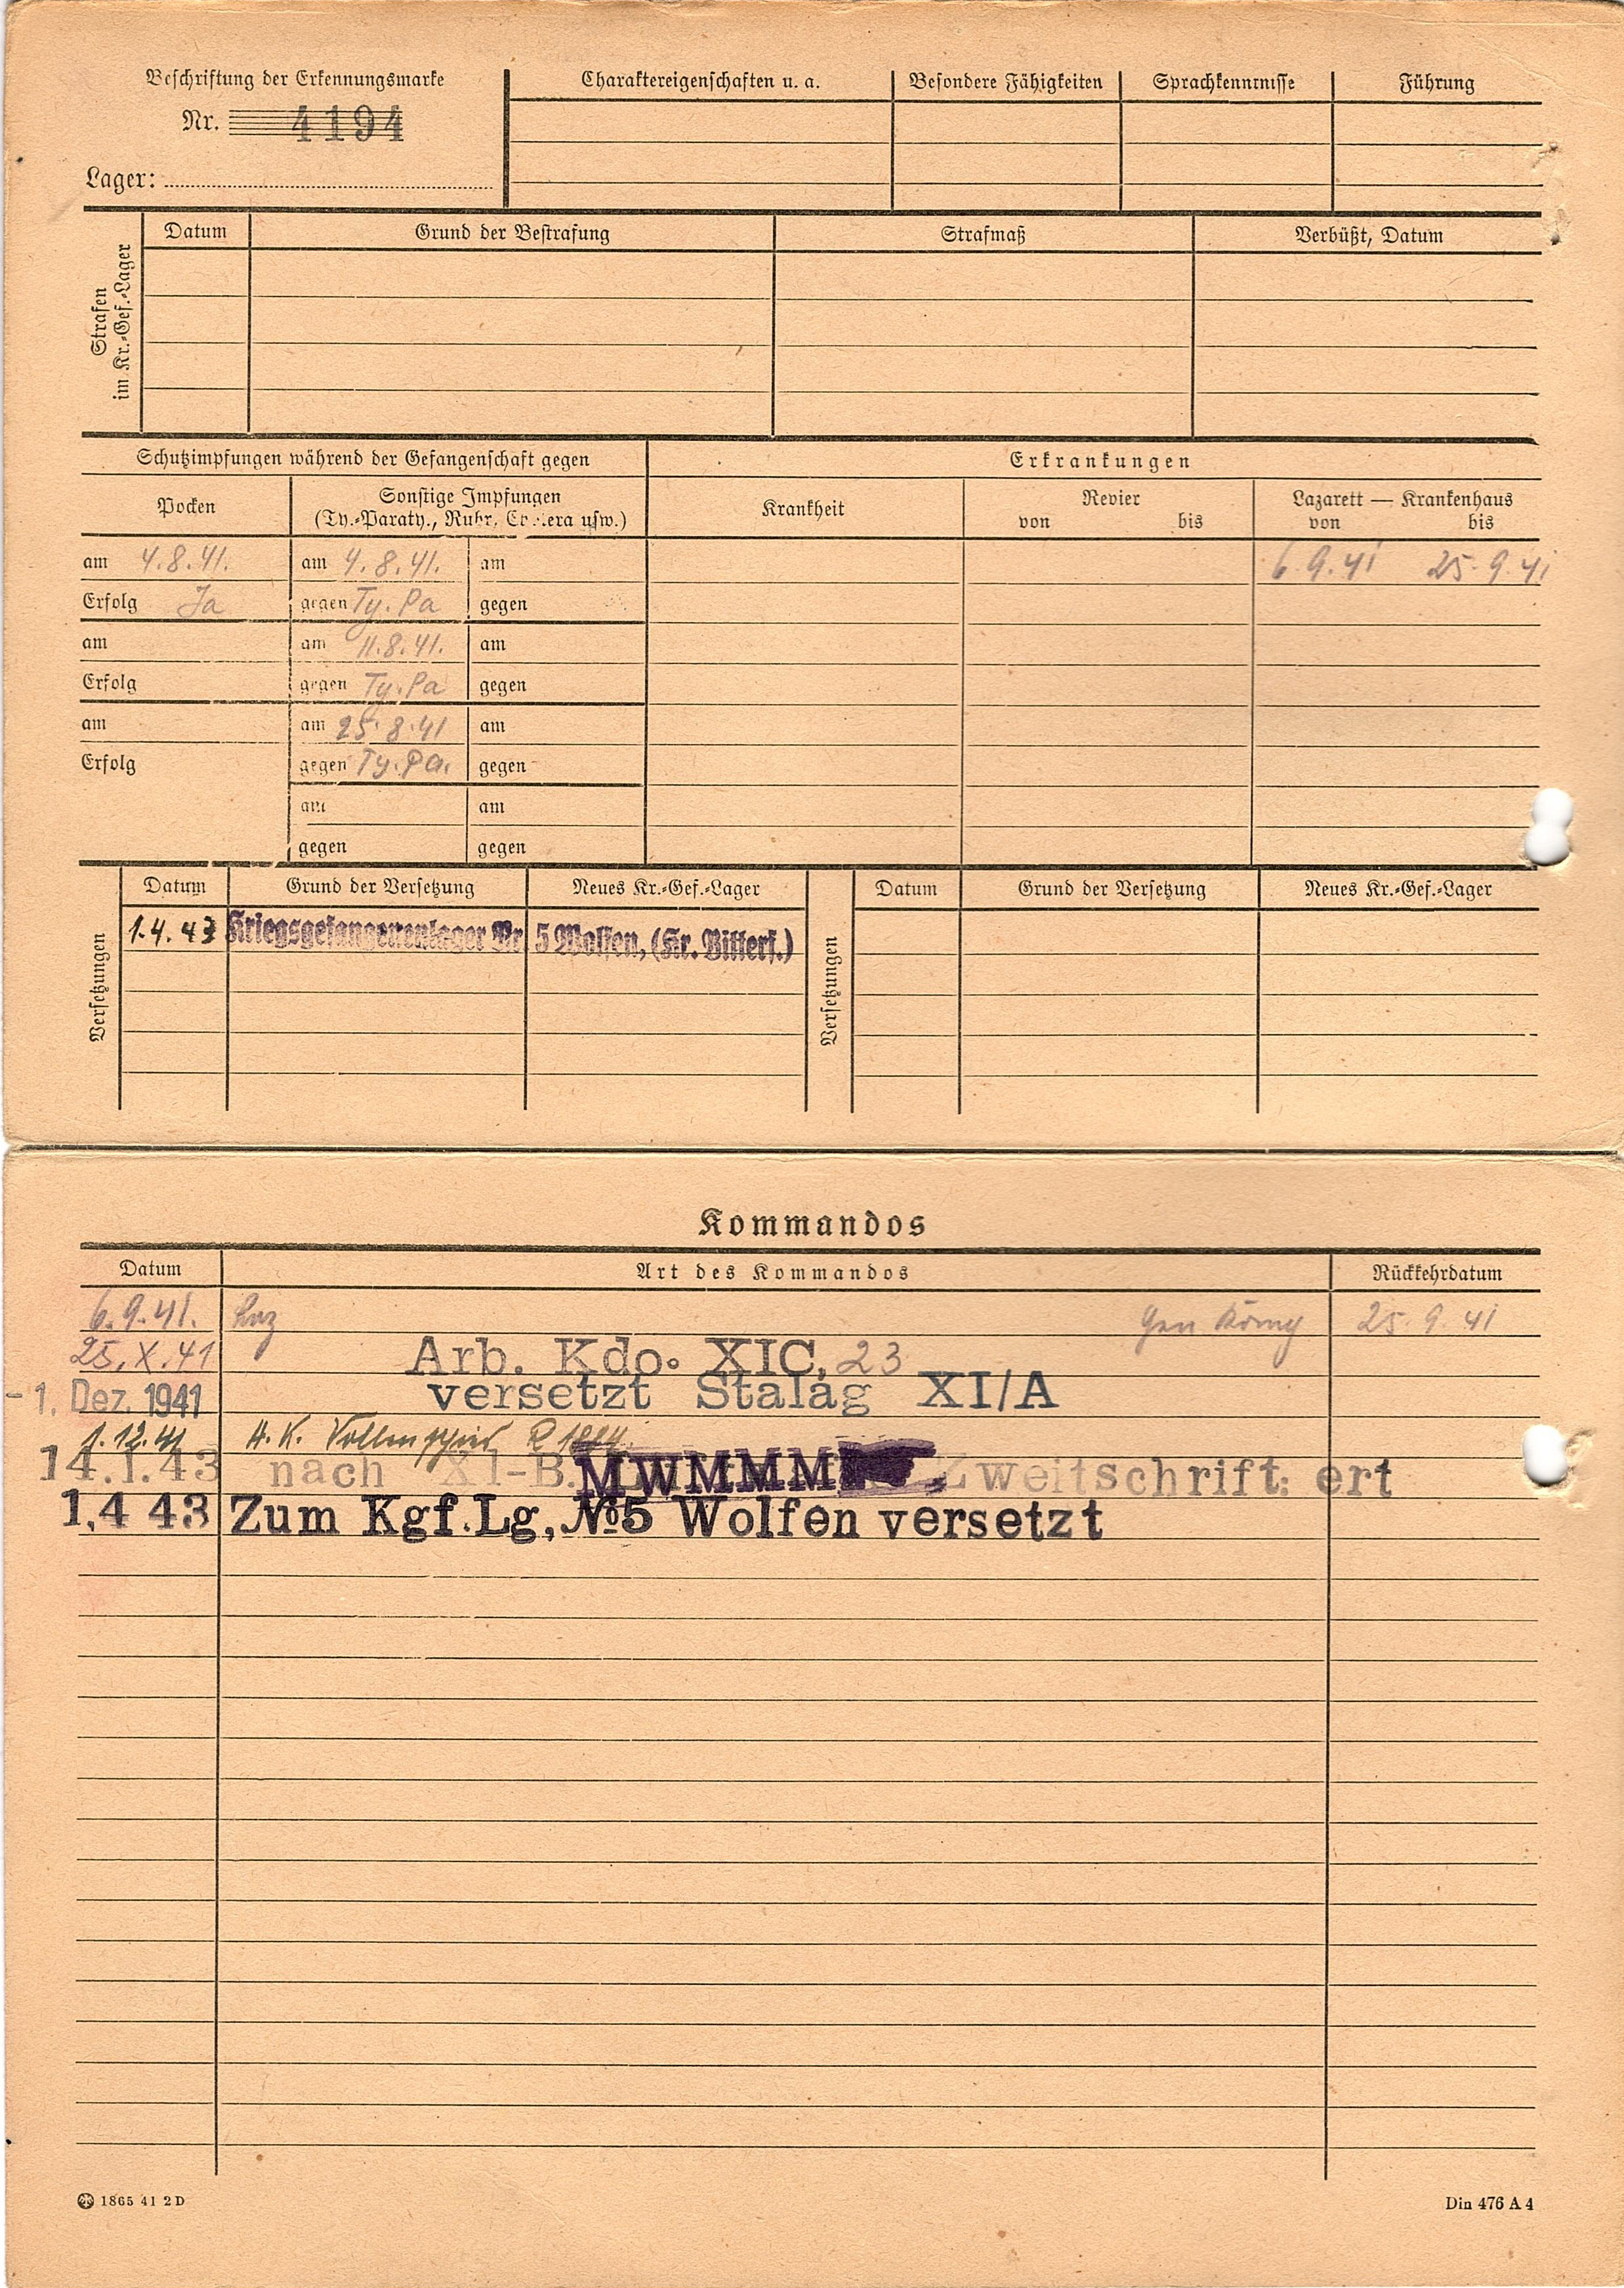 Beschriftung der Erkennungsmarke
Nr. 4194
Lager:
Charaktereigenschaften u. a. Besondere Fähigkeiten Sprachkenntnisse Führung
Strafen
im Kr.-Gef.-Lager
Datum Grund der Bestrafung Strafmaß Verbüßt, Datum
Schutzimpfungen während der Gefangenschaft gegen Erkrankungen
Pocken Sonstige Impfungen
(Ty.-Paraty., Ruhr, Cholera usw.)
Krankheit Revier Lazarett — Krankenhaus
von bis von bis
am 4.8.41. am 4.8.41. am 6.9.41 25.9.41
Erfolg Ja gegen Ty. Pa gegen
am am 11.8.41. am
Erfolg gegen Ty. Pa gegen
am am 25.8.41 am
Erfolg gegen Ty. Pa. gegen
am am
gegen gegen
Versetzungen
Datum Grund der Versetzung Neues Kr.-Gef.-Lager
1.4.43 Kriegsgefangenenlager Nr 5 Wolfen, (Kr. Bitterf.)
Versetzungen
Datum Grund der Versetzung Neues Kr.-Gef.-Lager
Kommandos
Datum Art des Kommandos Rückkehrdatum
6.9.41. Laz 25.9.41
25.X.41 Arb. Kdo. XIC, 23
-1. Dez. 1941 versetzt Stalag XI/A
1.12.41 A.K.
14.1.43 nach XI-B. MWMMM Zweitschrift: ert
1,4 43 Zum Kgf.Lg, №5 Wolfen versetzt
1865 41 2 D
Din 476 A 4